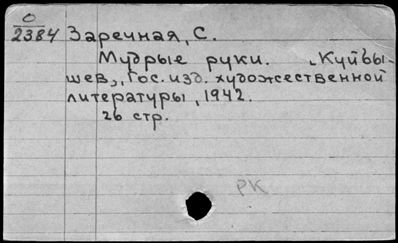 0
2384 Заречная, С.
Мудрые руки. „Куйбы-
шев„, Гос. изд. художественной
литературы, 1942.
26 стр.
РК